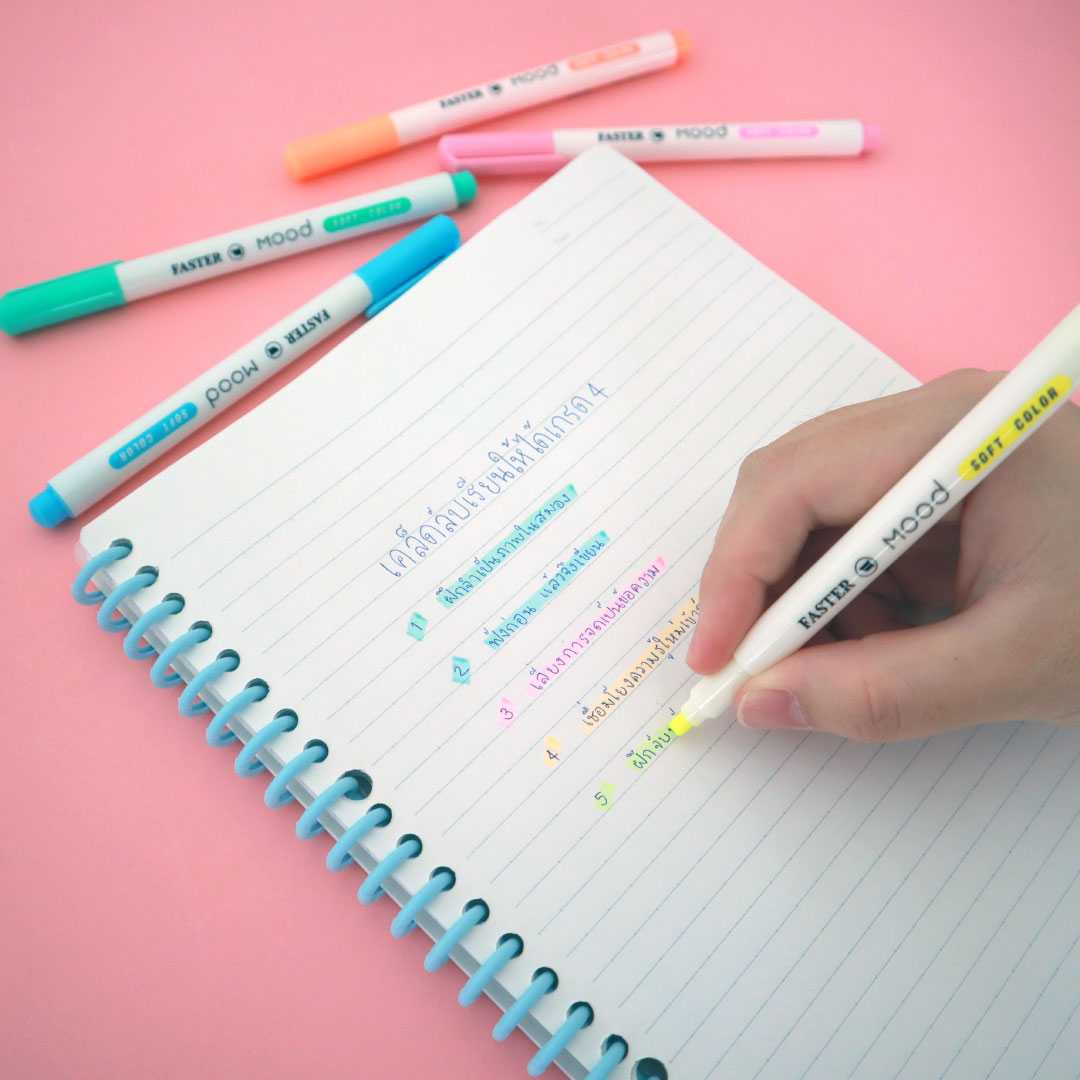 FASTER MOOD
FASTER MOOD
FASTER MOOD SOFT COLOR
FASTER MOOD SOFT COLOR
เคล็ดลับเรียนให้ได้เกรด 4
1 ฝึกจำเป็นภาพในสมอง
2 ฟังก่อน แล้วจึงเขียน
3 เลี่ยงการจดเป็นข้อความ
4 เชื่อมโยงความรู้ใหม่เข้า
5 ฝึกจับ
FASTER MOOD SOFT COLOR